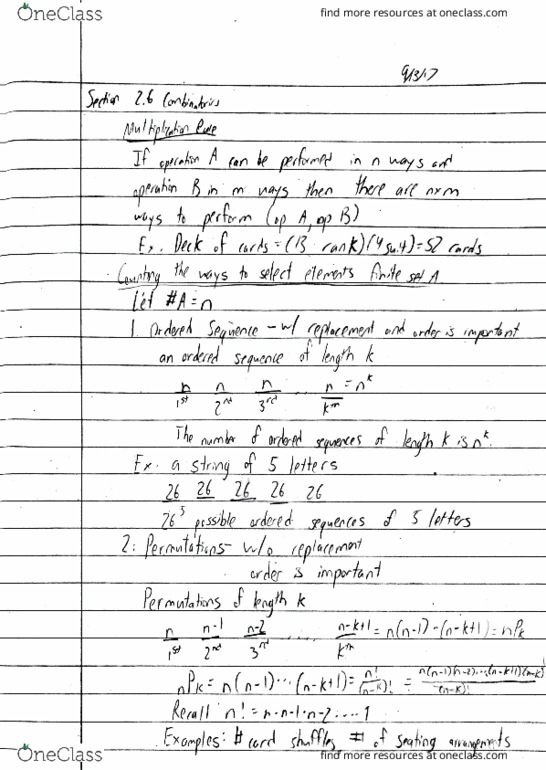 OneClass
find more resources at oneclass.com
9/13/17
Section 2.6 Combinatorics
Multiplication Rule
If operation A can be performed in n ways and
operation B in m ways then there are n×m
ways to perform (op A, op B)
Ex. Deck of cards = (13 rank)(4 suit) = 52 cards
Counting the ways to select elements finite set A
Let #A = n
1. Ordered Sequence - w/ replacement and order is important
an ordered sequence of length k
n n n ... n = n^k
1st 2nd 3rd kth
The number of ordered sequences of length k is n^k.
Ex. a string of 5 letters
26 26 26 26 26
26^5 possible ordered sequences of 5 letters
2: Permutations - w/o replacement
order is important
Permutations of length k
n n-1 n-2 ... n-k+1 = n(n-1)-(n-k+1) = nPk
1st 2nd 3rd kth
nPk = n(n-1)...(n-k+1) = n!/(n-k)! = n(n-1)(n-2)...(n-k+1)(n-k)!/(n-k)!
Recall n! = n·n-1·n-2·...·1
Examples: # card shuffles # of seating arrangements
OneClass
find more resources at oneclass.com